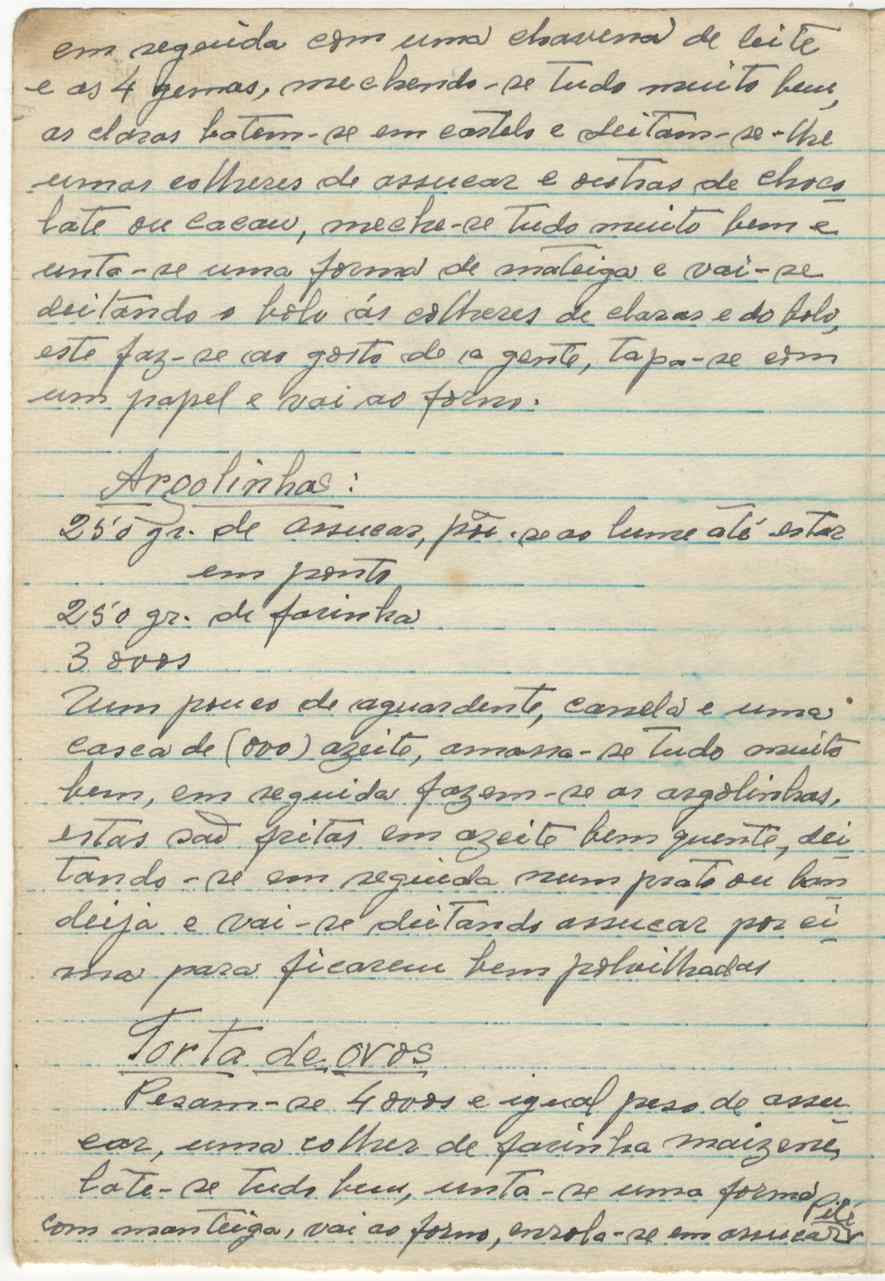 em seguida com uma chavena de leite
e as 4 gemas, mechendo-se tudo muito bem,
as claras batem-se em castelo e deitam-se-lhe
umas colheres de assucar e outras de choco
late ou cacau, meche-se tudo muito bem e
unta-se uma forma de mateiga e vai-se
deitando o bolo ás colheres de claras e do bolo,
este faz-se ao gosto de a gente, tapa-se com
um papel e vai ao forno.
Argolinhas:
250 gr. de assucar, põi-se ao lume até estar
em ponto
250 gr. de farinha
3 ovos
Um pouco de aguardente, canela e uma
casca de (ovo) azeite, amassa-se tudo muito
bem, em seguida fazem-se as argolinhas,
estas são fritas em azeite bem quente, dei
tando-se em seguida num prato ou ban
deija e vai-se deitando assucar por ci-
ma para ficarem bem polvilhadas
Torta de ovos
Pesam-se 4 ovos e igual peso de assu
car, uma colher de farinha maizena,
bate-se tudo bem, unta-se uma forma
com manteiga, vai ao forno, enrola-se em assucar pilé